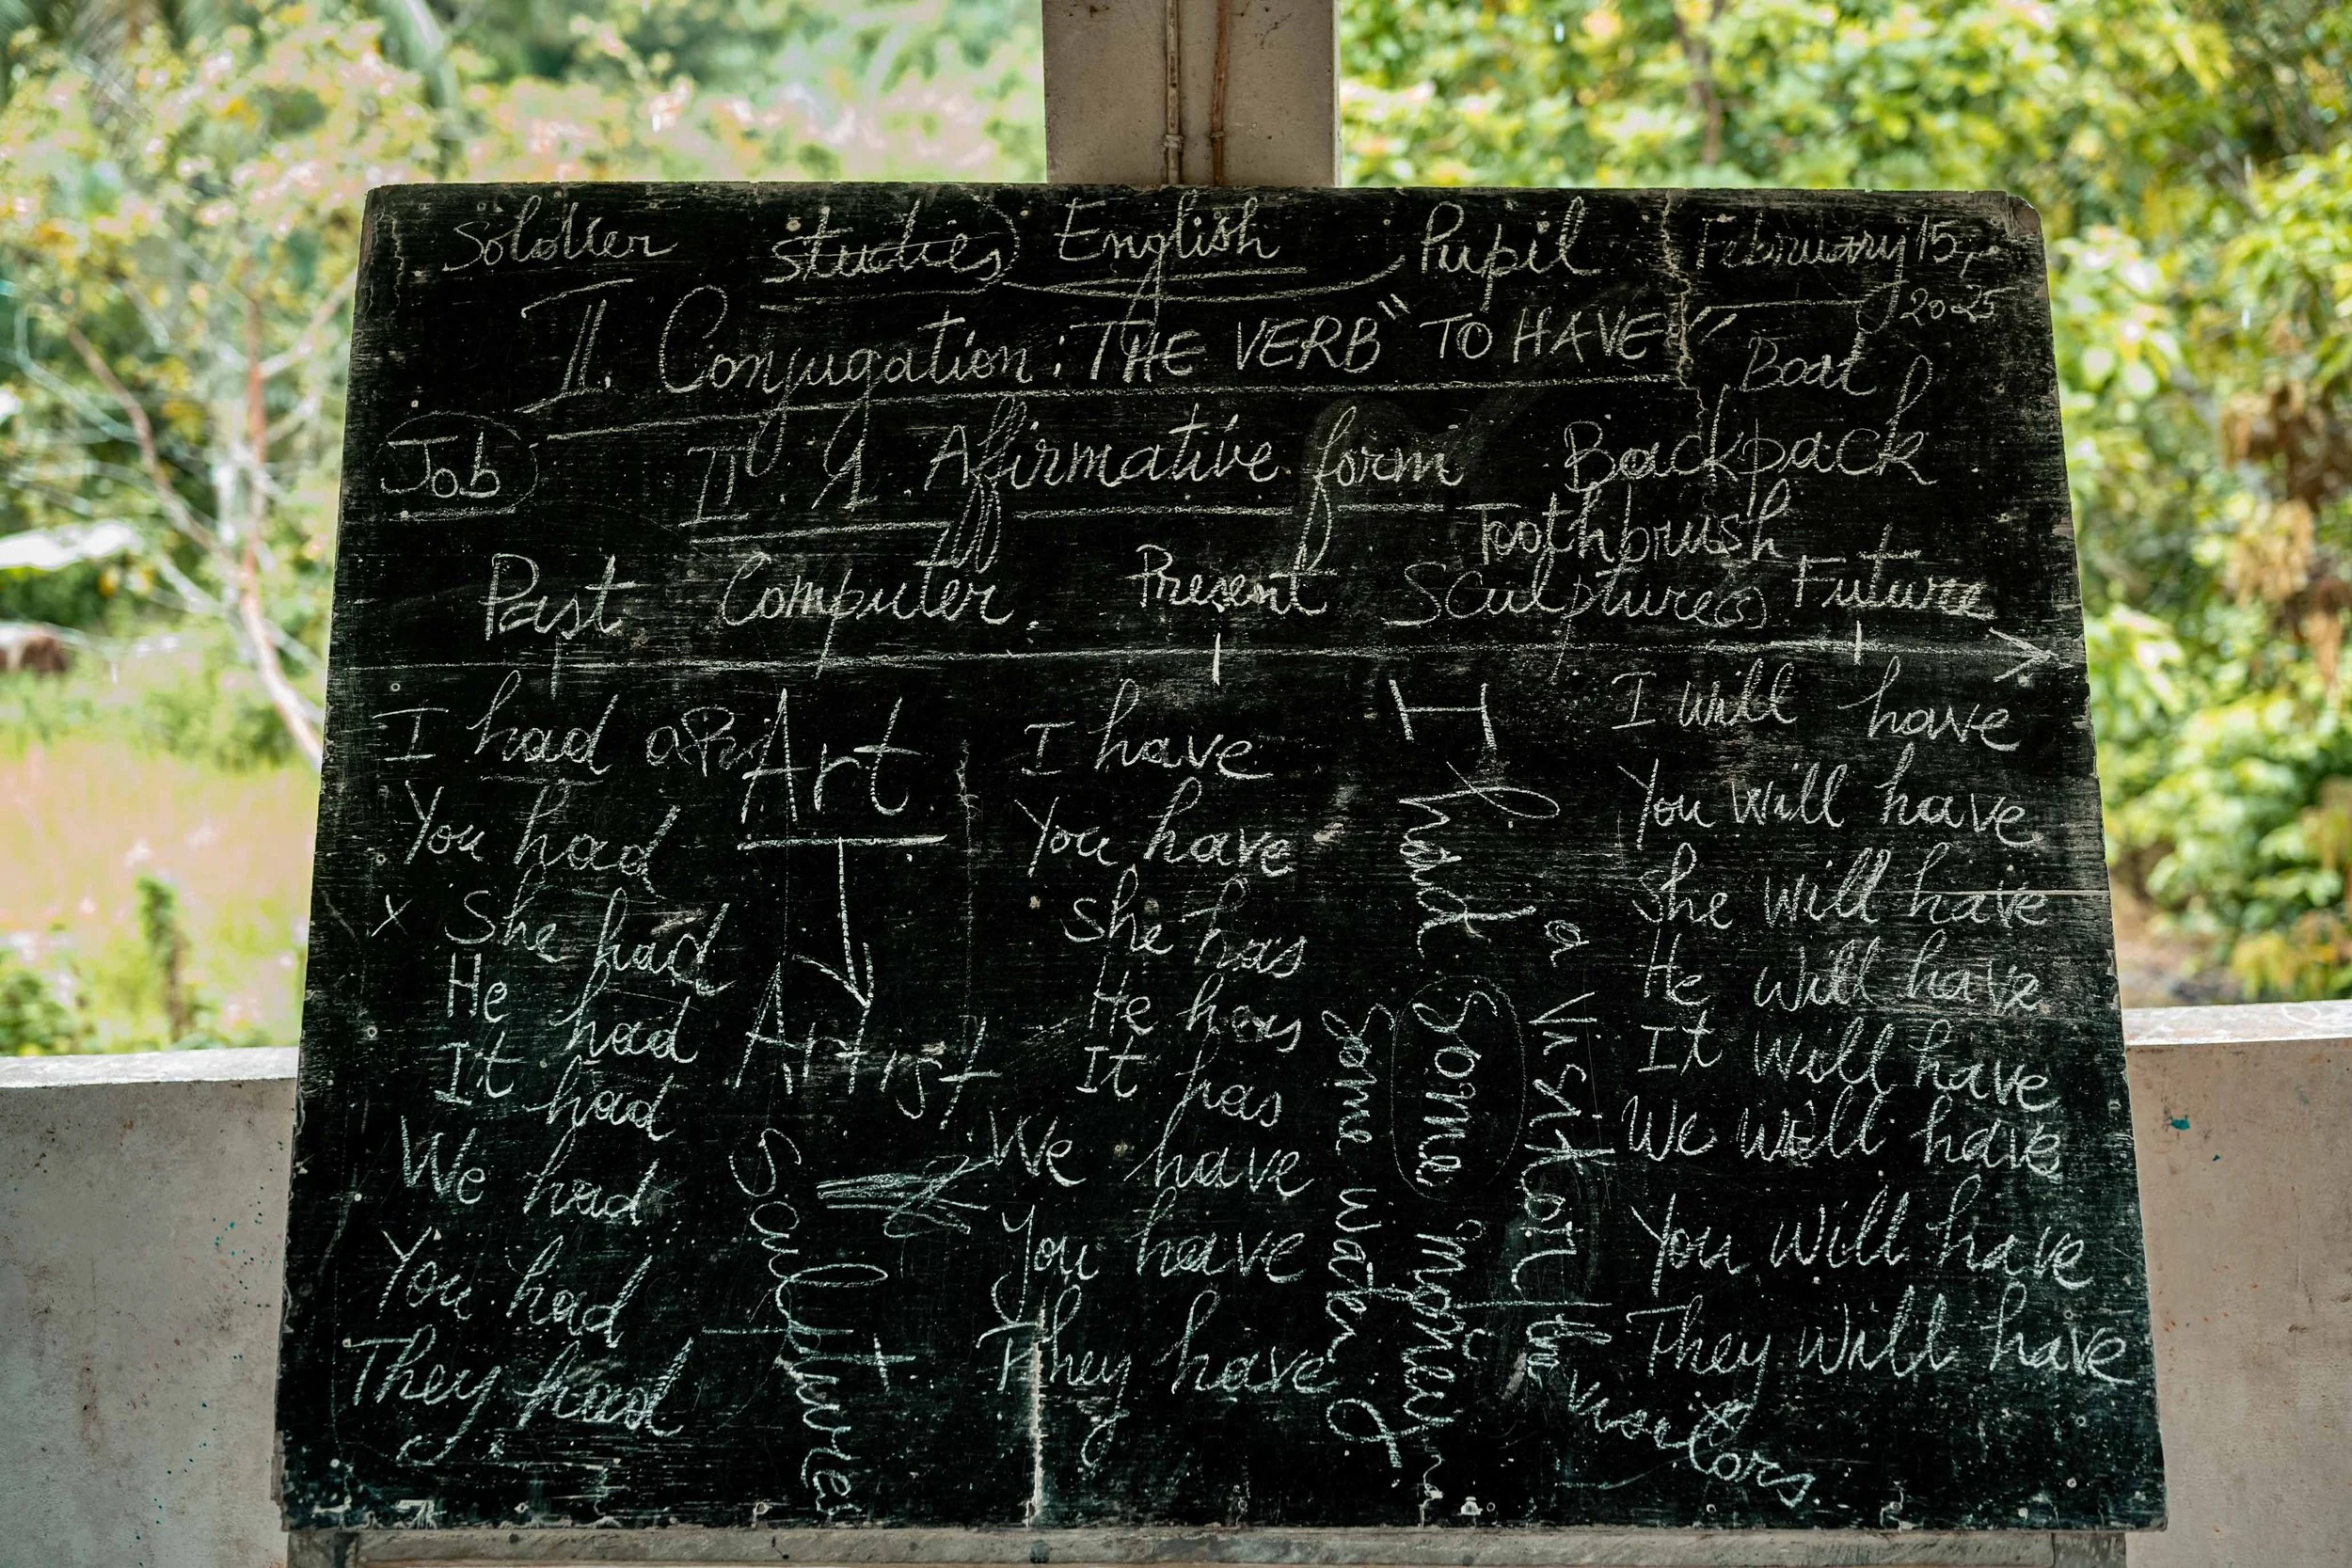 Soldier studies English Pupil February 15,
2025
II. Conjugation: THE VERB "TO HAVE"
Boat
Job II. 1. Affirmative form Backpack
Toothbrush
Past Computer Present Sculpture(s) Future
I had a
You had
x She had
He had
It had
We had
You had
They had
Art
Artist
Sculptures
I have
You have
She has
He has
It has
We have
You have
They have
I had a visitor / the visitors
I had some money
some water
I will have
You will have
She will have
He will have
It will have
We will have
You will have
They will have